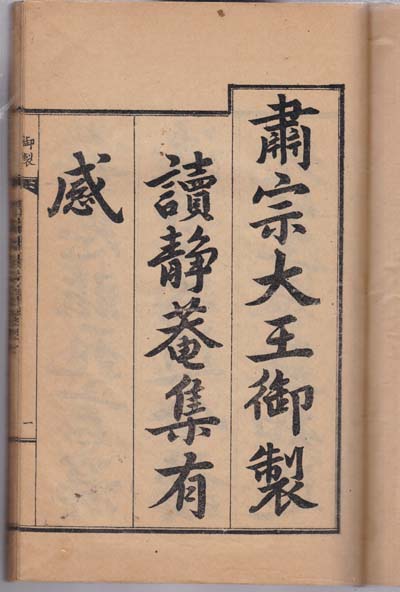 肅宗大王御製
讀静菴集有
感
御製
一